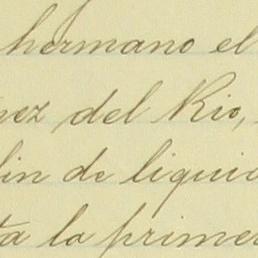 hermano el
ez del Rio,
fin de liquid
ta la primer